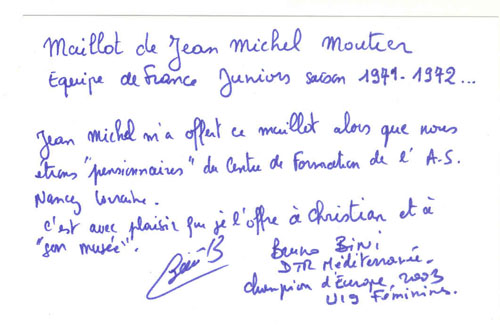 Maillot de Jean Michel Moutier
Equipe de France Juniors saison 1971-1972...
Jean Michel m'a offert ce maillot alors que nous
étions "pensionnaires" du Centre de Formation de l'A.S.
Nancy Lorraine.
C'est avec plaisir que je l'offre à Christian et à
"son musée".
Bini B
Bruno BiNi
DTR Méditerranée.
Champion d'Europe 2003
U19 Féminins.